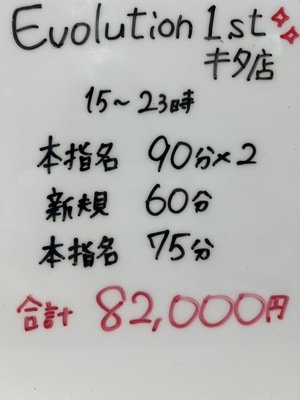 Evolution 1st
キタ店
15～23時
本指名 90分×2
新規 60分
本指名 75分
合計 82,000円